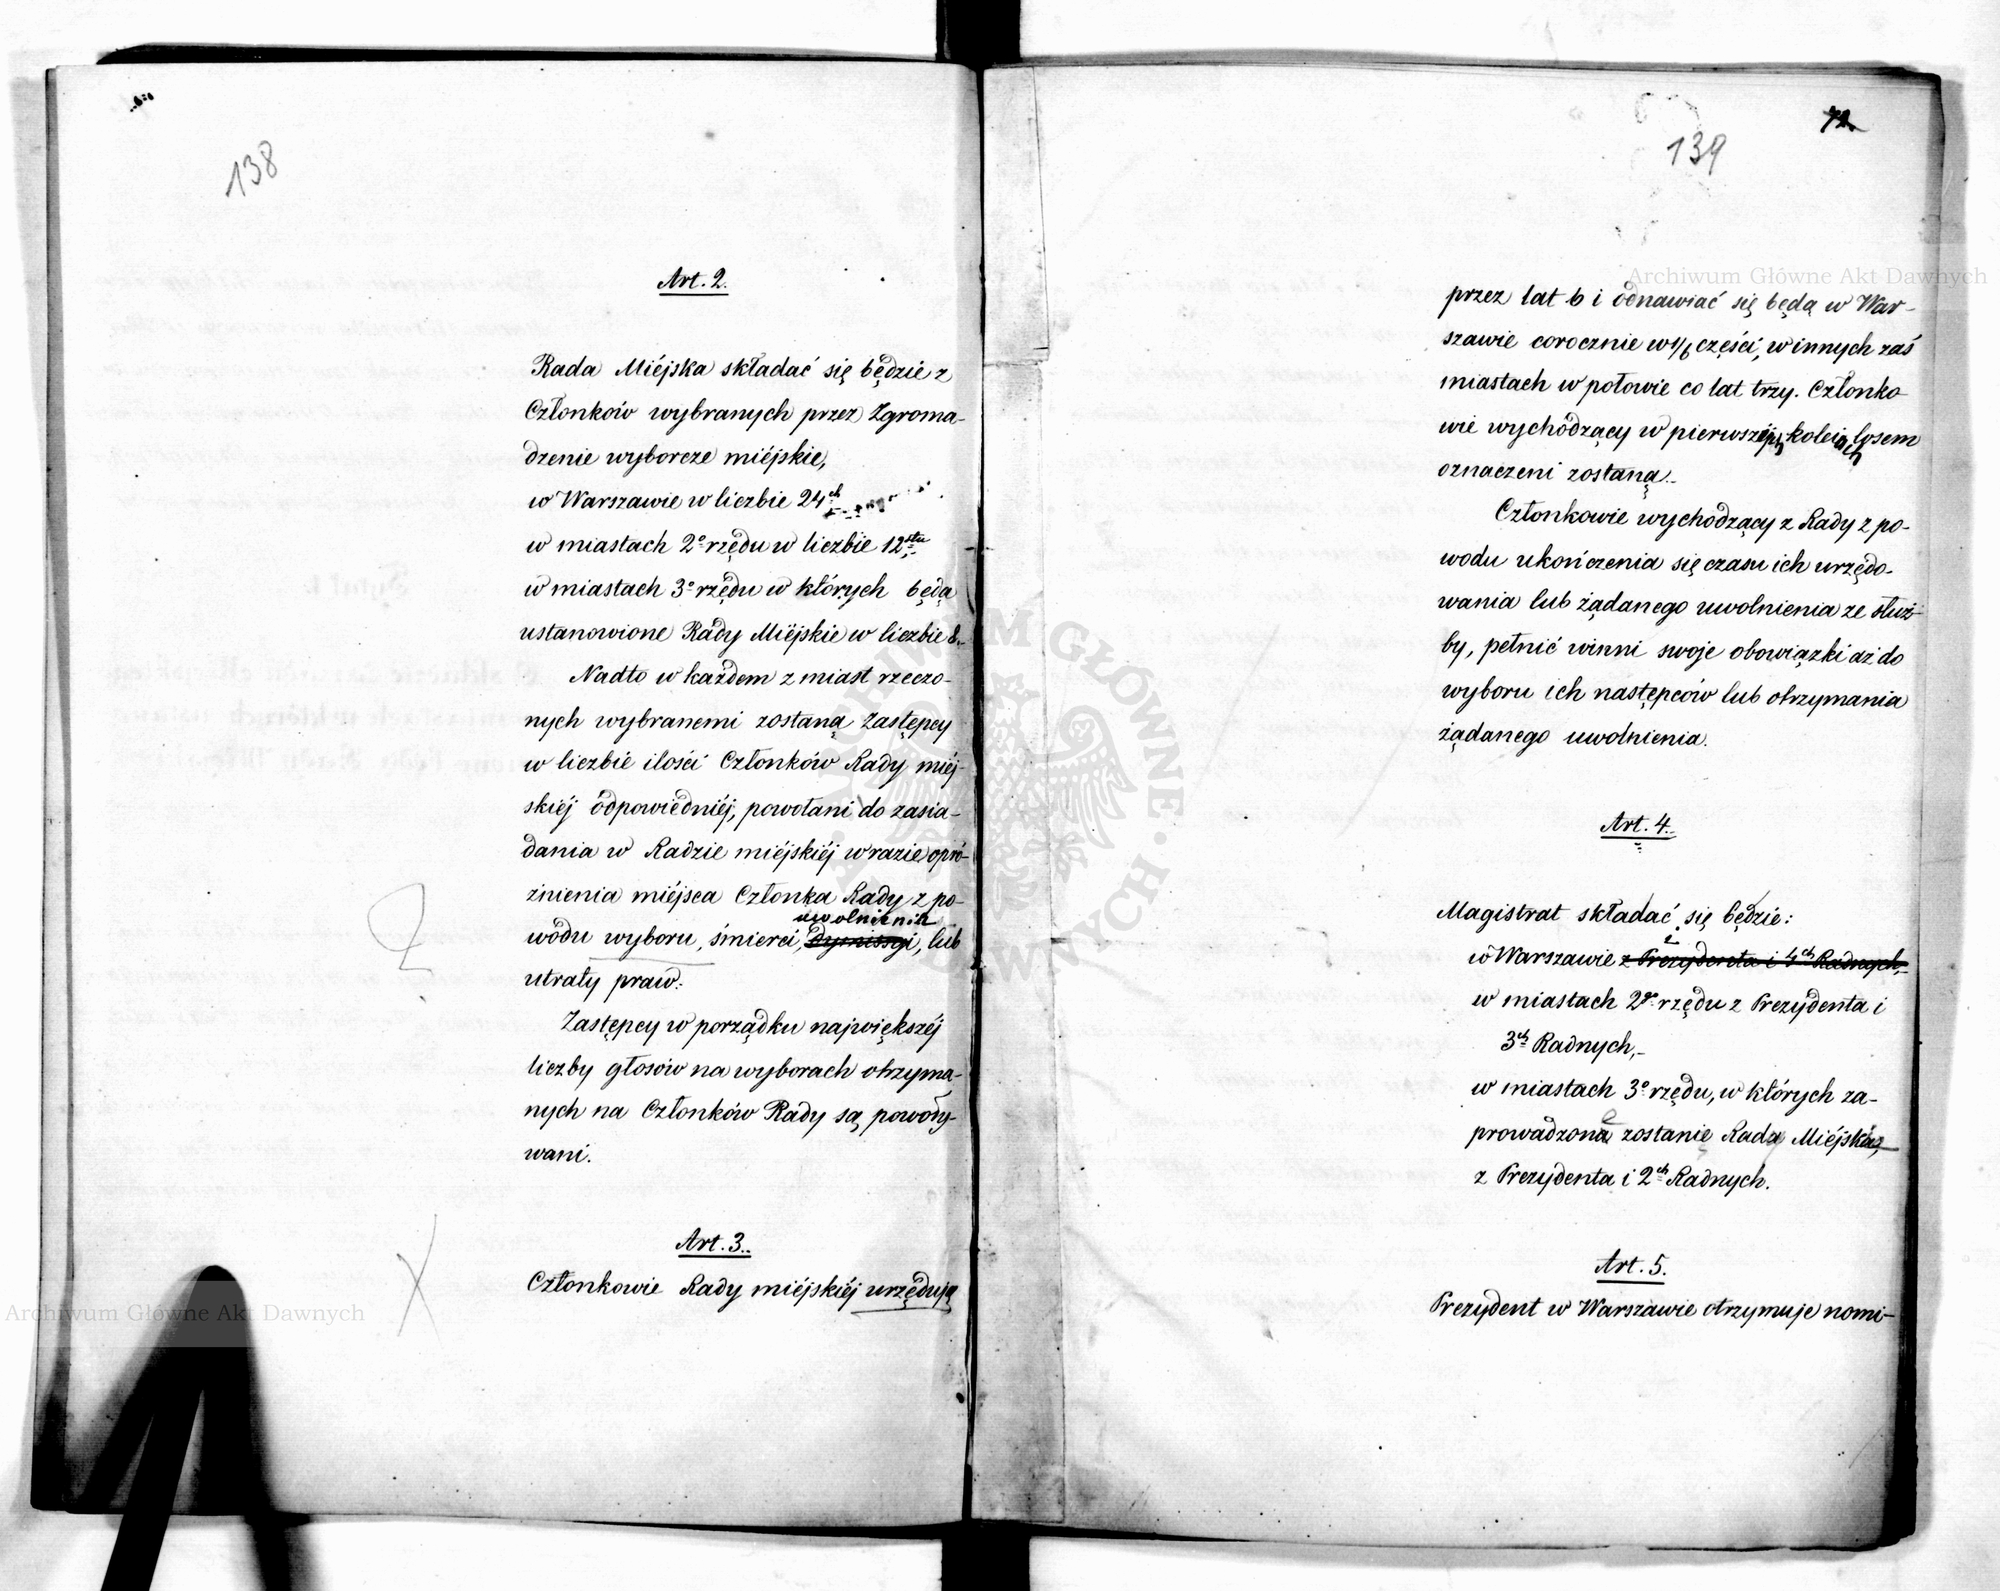 138
Art. 2.
Rada Miéjska składać się będzie z
Członków wybranych przez Zgroma-
dzenie wyborcze miéjskie,
w Warszawie w liczbie 24ch
w miastach 2o rzędu w liczbie 12stu
w miastach 3o rzędu w których będą
ustanowione Rady Miéjskie w liczbie 8.
Nadto w każdem z miast rzeczo-
nych wybranemi zostaną Zastępcy
w liczbie ilości Członków Rady miéj-
skiéj odpowiedniéj, powołani do zasia-
dania w Radzie miéjskiéj w razie opró-
żnienia miéjsca Członka Rady z po-
uwolnienia
wodu wyboru, śmierci, dymissyi, lub
utraty praw.
Zastępcy w porządku największéj
liczby głosów na wyborach otrzyma-
nych na Członków Rady są powoły-
wani.
Art. 3.
Członkowie Rady miéjskiéj urzędują
72
139
przez lat 6 i odnawiać się będą w War-
szawie corocznie w 1/6 części, w innych zaś
miastach w połowie co lat trzy. Członko
wie wychodzący w pierwszych koleiach losem
oznaczeni zostaną.
Członkowie wychodzący z Rady z po-
wodu ukończenia się czasu ich urzędo-
wania lub żądanego uwolnienia ze służ-
by, pełnić winni swoje obowiązki aż do
wyboru ich następców lub otrzymania
żądanego uwolnienia.
Art. 4.
Magistrat składać się będzie:
w Warszawie z Prezydenta i 4ch Radnych,
w miastach 2go rzędu z Prezydenta i
3ch Radnych,
w miastach 3o rzędu, w których za-
prowadzona zostanie Rada Miéjska,
z Prezydenta i 2ch Radnych.
Art. 5.
Prezydent w Warszawie otrzymuje nomi-
Archiwum Główne Akt Dawnych
Archiwum Główne Akt Dawnych
ARCHIWUM GŁÓWNE AKT DAWNYCH